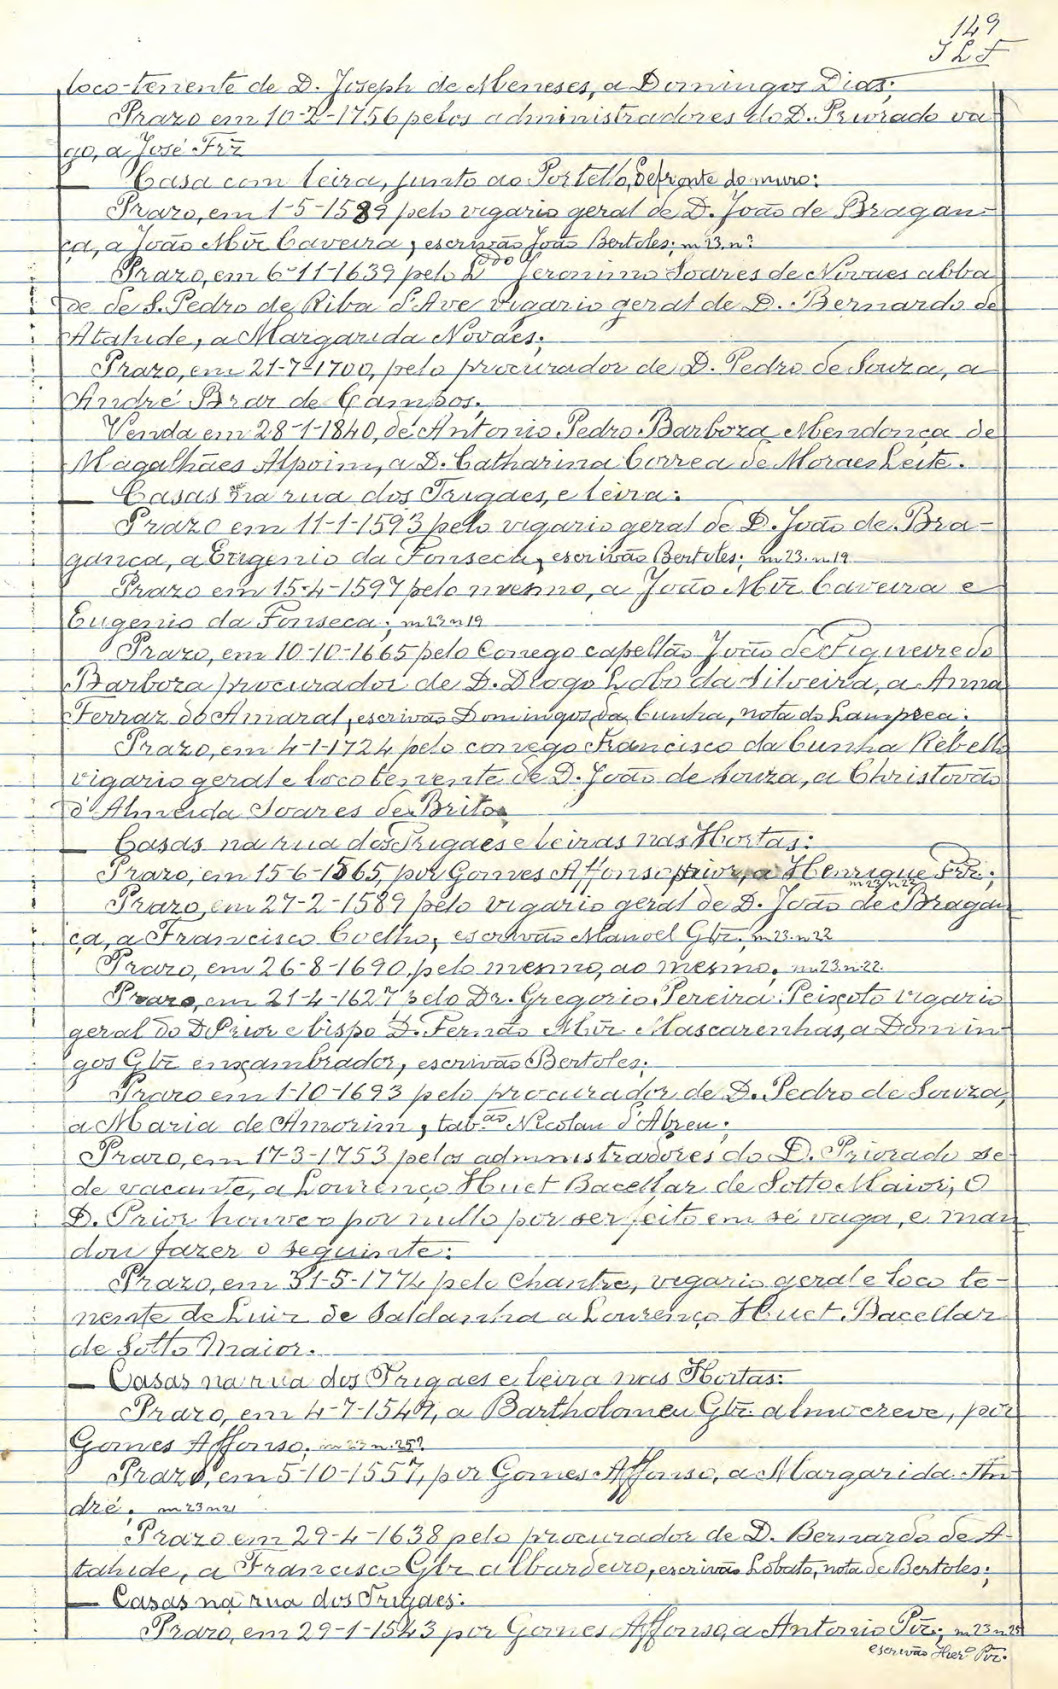 149
J L F
loco-tenente de D. Joseph de Meneses, a Domingos Dias;
Prazo em 10-2-1756 pelos administradores do D. Priorado va-
go, a José Frz
— Casa com leira, junto ao Portello, defronte do muro:
Prazo, em 1-5-1589 pelo vigario geral de D. João de Bragan-
ça, a João Mīz Caveira, escrivão João Bertoles; m 23, n?
Prazo, em 6-11-1639 pelo Ldo Jeronimo Soares de Novaes abba
de de S. Pedro de Riba d'Ave vigario geral de D. Bernardo de
Atahide, a Margarida Novaes;
Prazo, em 21-7-1700, pelo procurador de D. Pedro de Souza, a
André Braz de Campos;
Venda em 28-1-1840, de Antonio Pedro Barboza Mendonça de
Magalhães Alpoim, a D. Catharina Correa de Moraes Leite.
— Casas na rua dos Trigaes, e leira:
Prazo em 11-1-1593 pelo vigario geral de D. João de Bra-
gança, a Eugenio da Fonseca, escrivão Bertoles; m 23. n 19
Prazo em 15-4-1597 pelo mesmo, a João Mīz Caveira e
Eugenio da Fonseca; m 23 n 19
Prazo, em 10-10-1665 pelo Conego capellão João de Figueiredo
Barboza procurador de D. Diogo Lobo da Silveira, a Anna
Ferraz do Amaral, escrivão Domingos da Cunha, nota do Lamprea;
Prazo, em 4-1-1724 pelo conego Francisco da Cunha Rebello
vigario geral e loco tenente de D. João de Souza, a Christovão
d'Almeida Soares de Brito
— Casas na rua dos Trigaes e leiras nas Hortas:
Prazo, em 15-6-1565, por Gomes Affonso prior, a Henrique Frz;
m 23 n 22
Prazo, em 27-2-1589 pelo vigario geral de D. João de Bragan
ça, a Francisco Coelho, escrivão Manoel Glz; m 23. n 22
Prazo, em 26-8-1690, pelo mesmo, ao mesmo; m 23. n. 22.
Prazo, em 21-4-1627 pelo Dr. Gregorio Pereira Peixoto vigario
geral do D Prior e bispo D. Fernão Mīz Mascarenhas, a Domin-
gos Glz ensambrador, escrivão Bertoles;
Prazo em 1-10-1693 pelo procurador de D. Pedro de Souza,
a Maria de Amorim, tab.ão Nicolau d'Abreu;
Prazo, em 17-3-1753 pelos administradores do D. Priorado se-
de vacante, a Lourenço Huet Bacellar de Sotto Maior; O
D. Prior houve o por nullo por ser feito em sé vaga, e man
dou fazer o seguinte:
Prazo, em 31-5-1774 pelo Chantre, vigario geral e loco te-
nente de Luiz de Saldanha a Lourenço Huet Bacellar
de Sotto Maior.
— Casas na rua dos Trigaes e leira nas Hortas:
Prazo, em 4-7-1549, a Bartholomeu Glz almocreve, por
Gomes Affonso; m 23 n. 25?
Prazo, em 5-10-1557, por Gomes Affonso, a Margarida An-
dré; m 23 n 21
Prazo em 29-4-1638 pelo procurador de D. Bernardo de A-
tahide, a Francisco Glz albardeiro, escrivão Lobato, nota de Bertoles;
— Casas na rua dos Trigaes:
Prazo, em 29-1-1543 por Gomes Affonso, a Antonio Pīz; m 23 n 25
escrivão Hier.o Pīz.